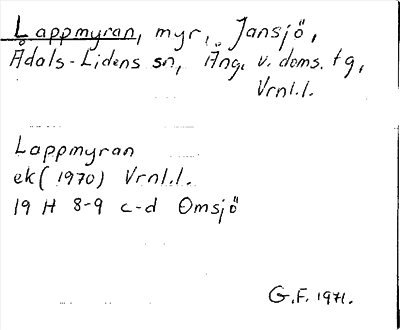 Lappmyran, myr, Jansjö,
Ådals-Lidens sn, Ång. v. doms. tg,
Vrnl.l.
Lappmyran
ek (1970) Vrnl.l.
19 H 8-9 c-d Omsjö
G.F. 1971.